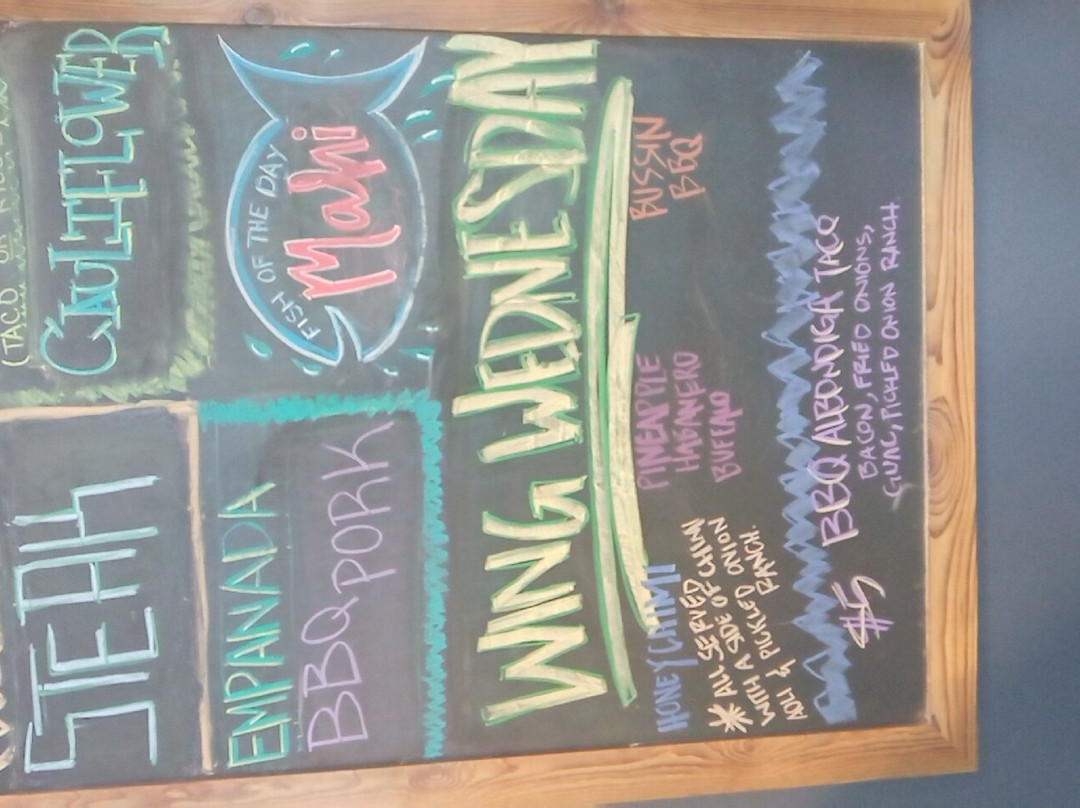 (TACO OR
CAULIFLOWER
STEAK
FISH OF THE DAY
Mahi
EMPANADA
BBQ PORK
WING WEDNESDAY
HONEY CHIMI
PINEAPPLE
HABANERO
BUFFALO
BUSSIN
BBQ
* ALL SERVED
WITH A SIDE OF CHIMI
AOLI & PICKLED ONION
RANCH.
#5 BBQ ALBONDIGA TACO
BACON, FRIED ONIONS,
GUAC, PICKLED ONION RANCH